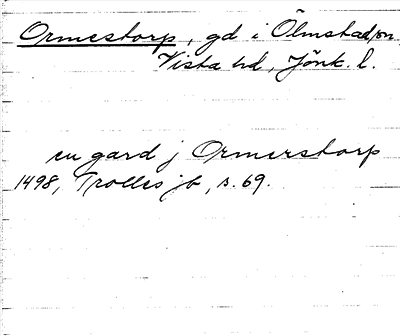 Ormestorp, gd i Ölmstad sn,
Vista hd, Jönk. l.
en gard j Ormerstorp
1498, Trolles jb, s. 69.